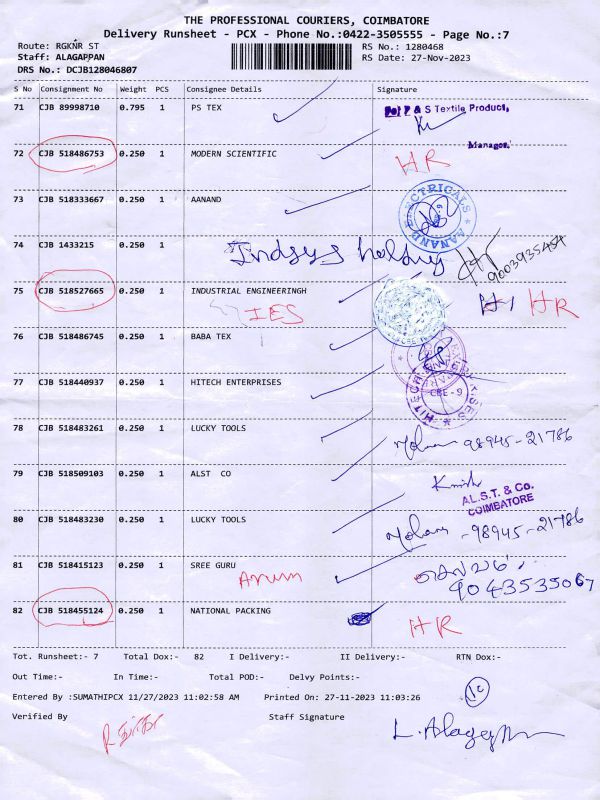 THE PROFESSIONAL COURIERS, COIMBATORE
Delivery Runsheet - PCX - Phone No.:0422-3505555 - Page No.:7
Route: RGKNR ST RS No.: 1280468
Staff: ALAGAPPAN RS Date: 27-Nov-2023
DRS No.: DCJB128046807
S No Consignment No Weight PCS Consignee Details Signature
71 CJB 89998710 0.795 1 PS TEX
P & S Textile Product,
Manager.
72 CJB 518486753 0.250 1 MODERN SCIENTIFIC HR
73 CJB 518333667 0.250 1 AANAND
MANAND ELECTRICALS
74 CJB 1433215 0.250 1
9003935454
75 CJB 518527665 0.250 1 INDUSTRIAL ENGINEERINGH
IES HR
76 CJB 518486745 0.250 1 BABA TEX
77 CJB 518440937 0.250 1 HITECH ENTERPRISES
HITECH CBE - 9
78 CJB 518483261 0.250 1 LUCKY TOOLS
98945-21786
79 CJB 518509103 0.250 1 ALST CO
AL.S.T. & Co.
COIMBATORE
80 CJB 518483230 0.250 1 LUCKY TOOLS
-98945-21786
81 CJB 518415123 0.250 1 SREE GURU
9043535067
82 CJB 518455124 0.250 1 NATIONAL PACKING HR
Tot. Runsheet:- 7 Total Dox:- 82 I Delivery:- II Delivery:- RTN Dox:-
Out Time:- In Time:- Total POD:- Delvy Points:-
Entered By :SUMATHIPCX 11/27/2023 11:02:58 AM Printed On: 27-11-2023 11:03:26
Verified By Staff Signature